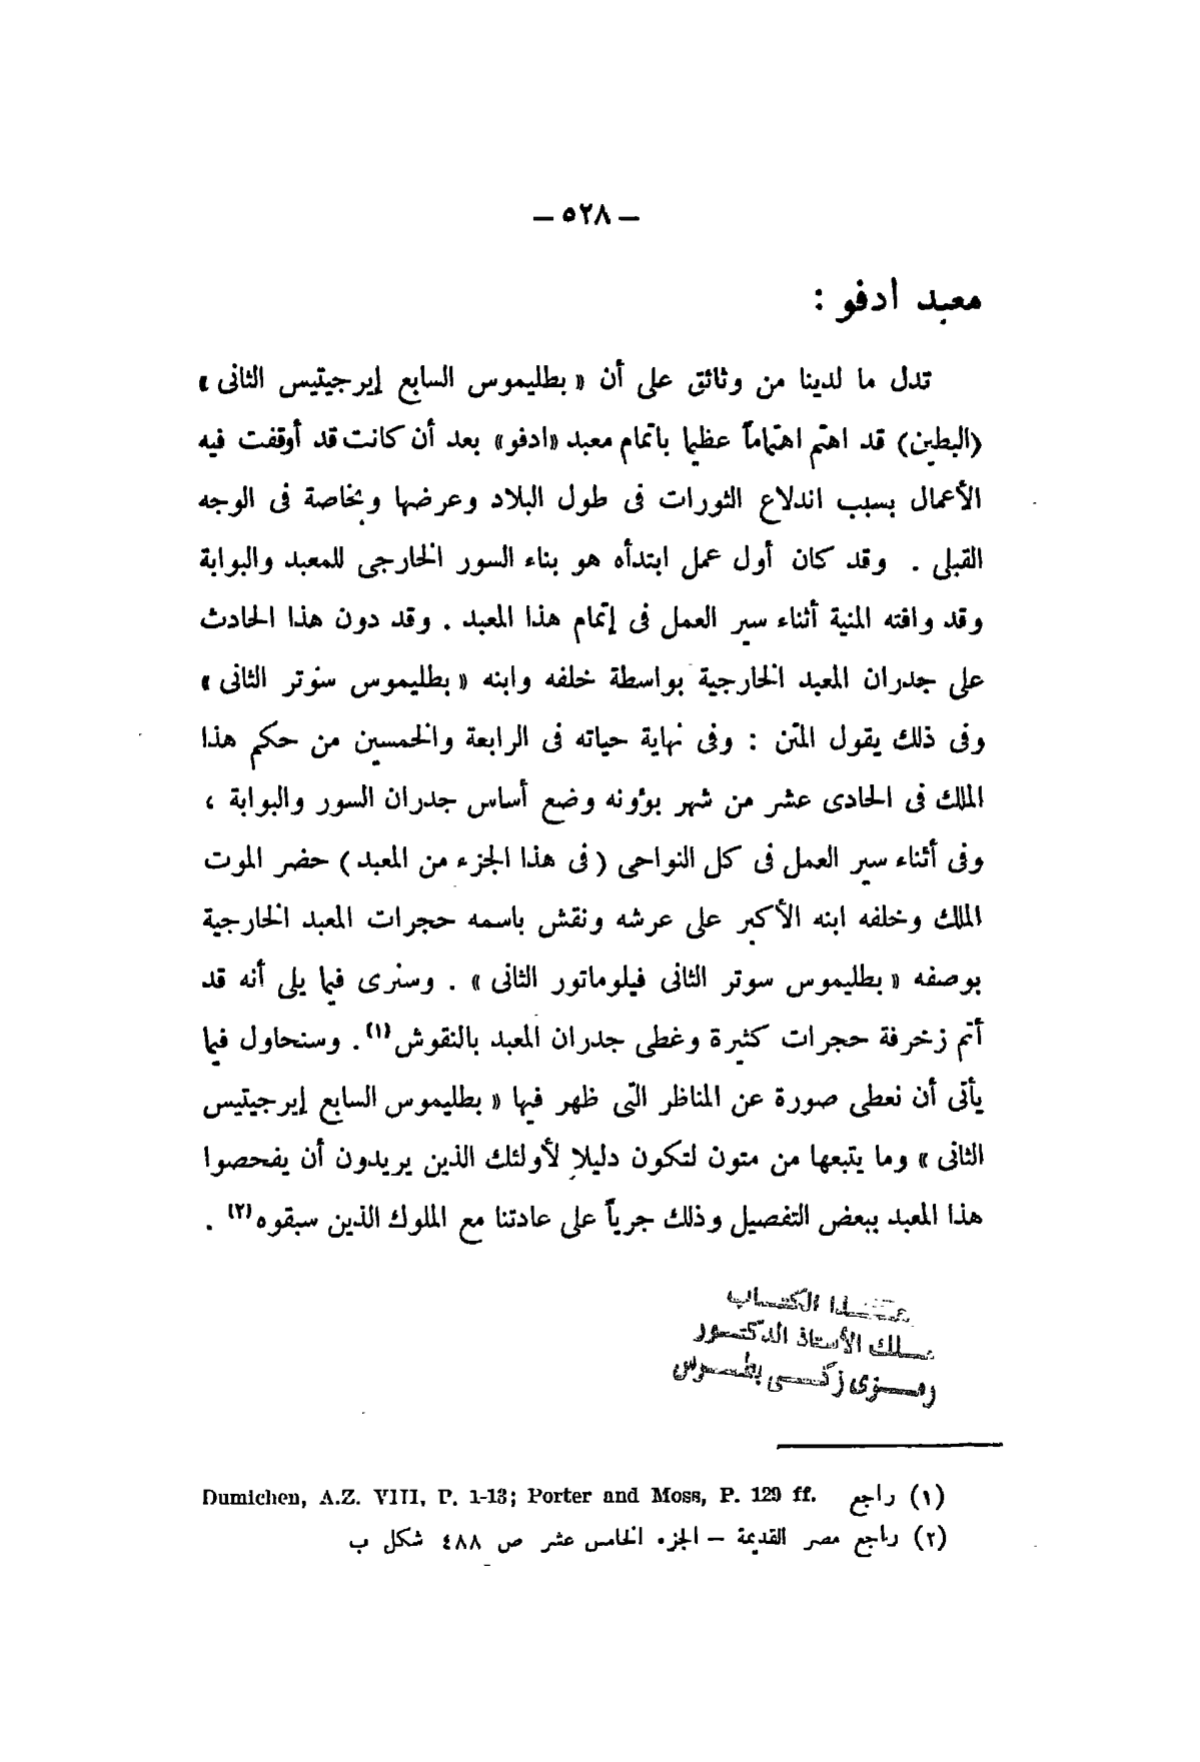 — ٥٢٨ —
معبد ادفو :
تدل ما لدينا من وثائق على أن « بطليموس السابع إيرجيتيس الثانى »
(البطين) قد اهتم اهتماماً عظيما باتمام معبد «ادفو» بعد أن كانت قد أوقفت فيه
الأعمال بسبب اندلاع الثورات فى طول البلاد وعرضها وبخاصة فى الوجه
القبلى . وقد كان أول عمل ابتدأه هو بناء السور الخارجى للمعبد والبوابة
وقد وافته المنية أثناء سير العمل فى إتمام هذا المعبد . وقد دون هذا الحادث
على جدران المعبد الخارجية بواسطة خلفه وابنه « بطليموس سوتر الثانى »
وفى ذلك يقول المتن : وفى نهاية حياته فى الرابعة والخمسين من حكم هذا
الملك فى الحادى عشر من شهر بوؤنه وضع أساس جدران السور والبوابة ،
وفى أثناء سير العمل فى كل النواحى ( فى هذا الجزء من المعبد ) حضر الموت
الملك وخلفه ابنه الأكبر على عرشه ونقش باسمه حجرات المعبد الخارجية
بوصفه « بطليموس سوتر الثانى فيلوماتور الثانى » . وسنرى فيما يلى أنه قد
أتم زخرفة حجرات كثيرة وغطى جدران المعبد بالنقوش (١) . وسنحاول فيما
يأتى أن نعطى صورة عن المناظر التى ظهر فيها « بطليموس السابع إيرجيتيس
الثانى » وما يتبعها من متون لتكون دليلا لأولئك الذين يريدون أن يفحصوا
هذا المعبد ببعض التفصيل وذلك جرياً على عادتنا مع الملوك الذين سبقوه (٢) .
هذا الكتاب
ملك الأستاذ الدكتور
رمزى زكى بطرس
(١) راجع Dumichen, A.Z. VIII, P. 1-13; Porter and Moss, P. 129 ff.
(٢) راجع مصر القديمة – الجزء الخامس عشر ص ٤٨٨ شكل ب